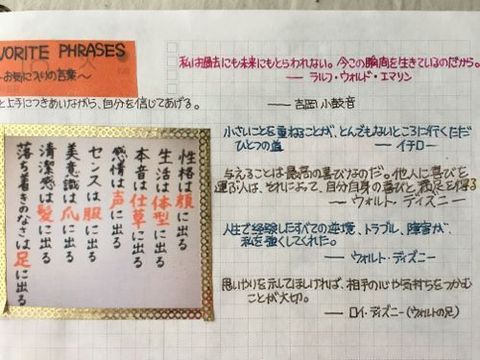 VORITE PHRASES
〜お気に入りの言葉〜
私は過去にも未来にもとらわれない。今この瞬間を生きているのだから。
── ラルフ・ウォルド・エマソン
と上手につきあいながら、自分を信じてあげる。
── 吉岡小鼓音
小さいことを重ねることが、とんでもないところに行くただ
ひとつの道 ── イチロー
与えることは最高の喜びなのだ。他人に喜びを
運ぶ人は、それによって、自分自身の喜びと満足を得る
── ウォルト・ディズニー
人生で経験したすべての逆境、トラブル、障害が、
私を強くしてくれた。
── ウォルト・ディズニー
思いやりを示してほしければ、相手の心や気持ちをつかむ
ことが大切。
── ロイ・ディズニー(ウォルトの兄)
性格は顔に出る
生活は体型に出る
本音は仕草に出る
感情は声に出る
センスは服に出る
美意識は爪に出る
清潔感は髪に出る
落ち着きのなさは足に出る